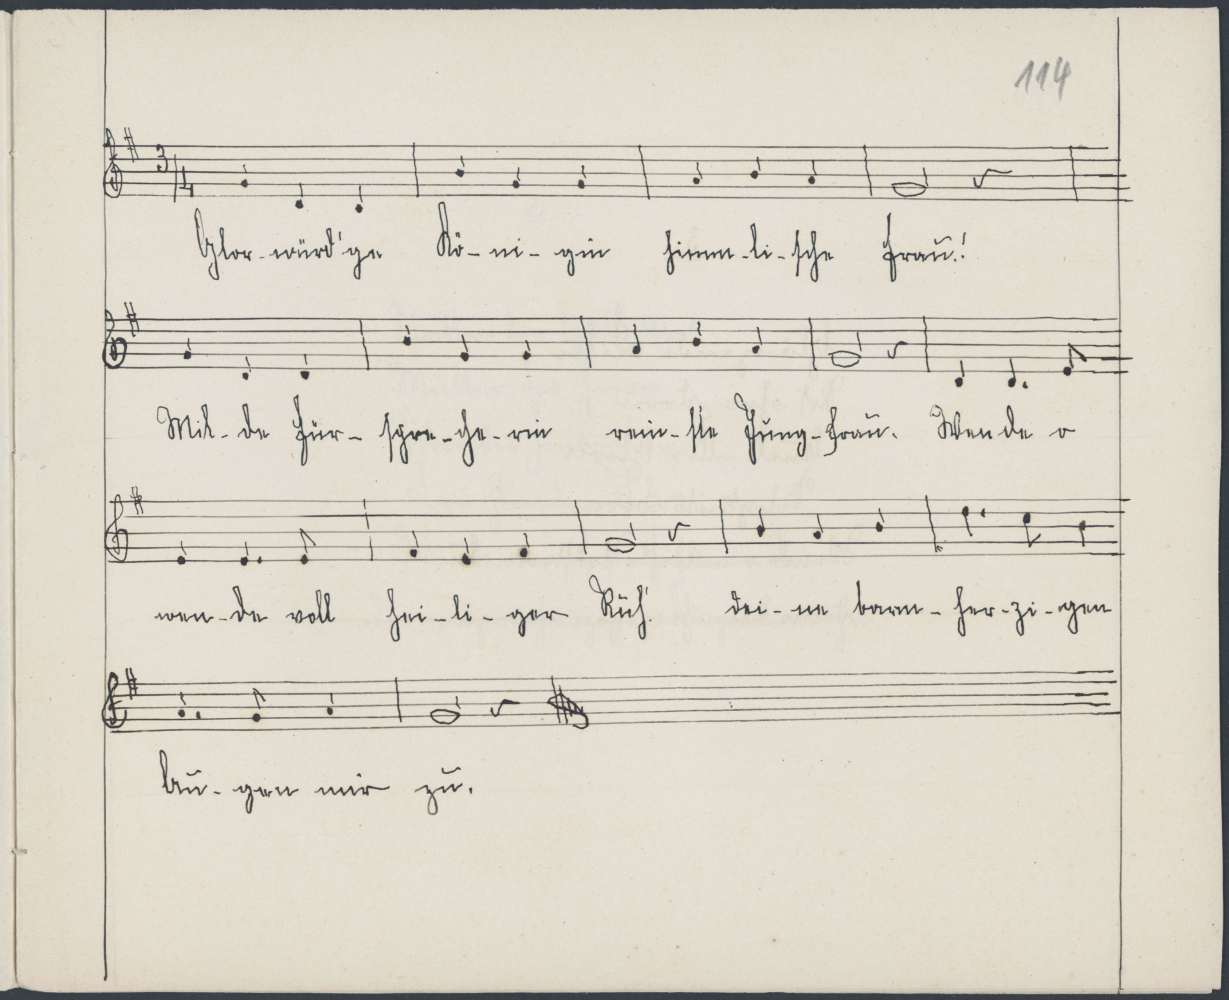 114
3
4
Glor-würd'ge Kö-ni-gin himm-li-sche Frau!
Mil-de Für-spre-che-rin rein-ste Jung-frau. Wende o
wen-de voll hei-li-ger Ruh' dei-ne barm-her-zi-gen
Au-gen mir zu.